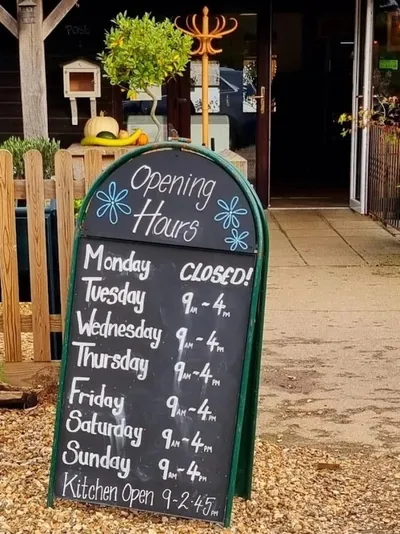 Opening
Hours
Monday CLOSED!
Tuesday 9AM-4PM
Wednesday 9AM-4PM
Thursday 9AM-4PM
Friday 9AM-4PM
Saturday 9AM-4PM
Sunday 9AM-4PM
Kitchen Open 9-2.45PM